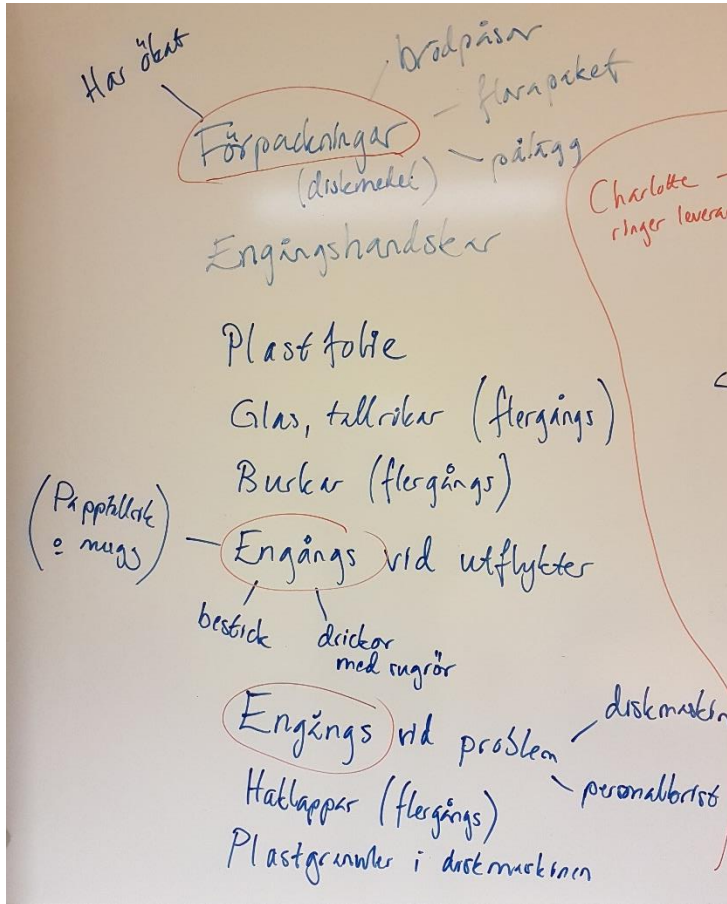 Har ökat
brödpåsar
florapaket
Förpackningar
pålägg
(diskmedel)
Charlotte -
ringer levera
Engångshandskar
Plastfolie
Glas, tallrikar (flergångs)
Burkar (flergångs)
(Papptallrik
o mugg)
Engångs vid utflykter
bestick
drickor
med sugrör
Engångs vid problem
diskmaskin
personalbrist
Haklappar (flergångs)
Plastgranuler i diskmaskinen